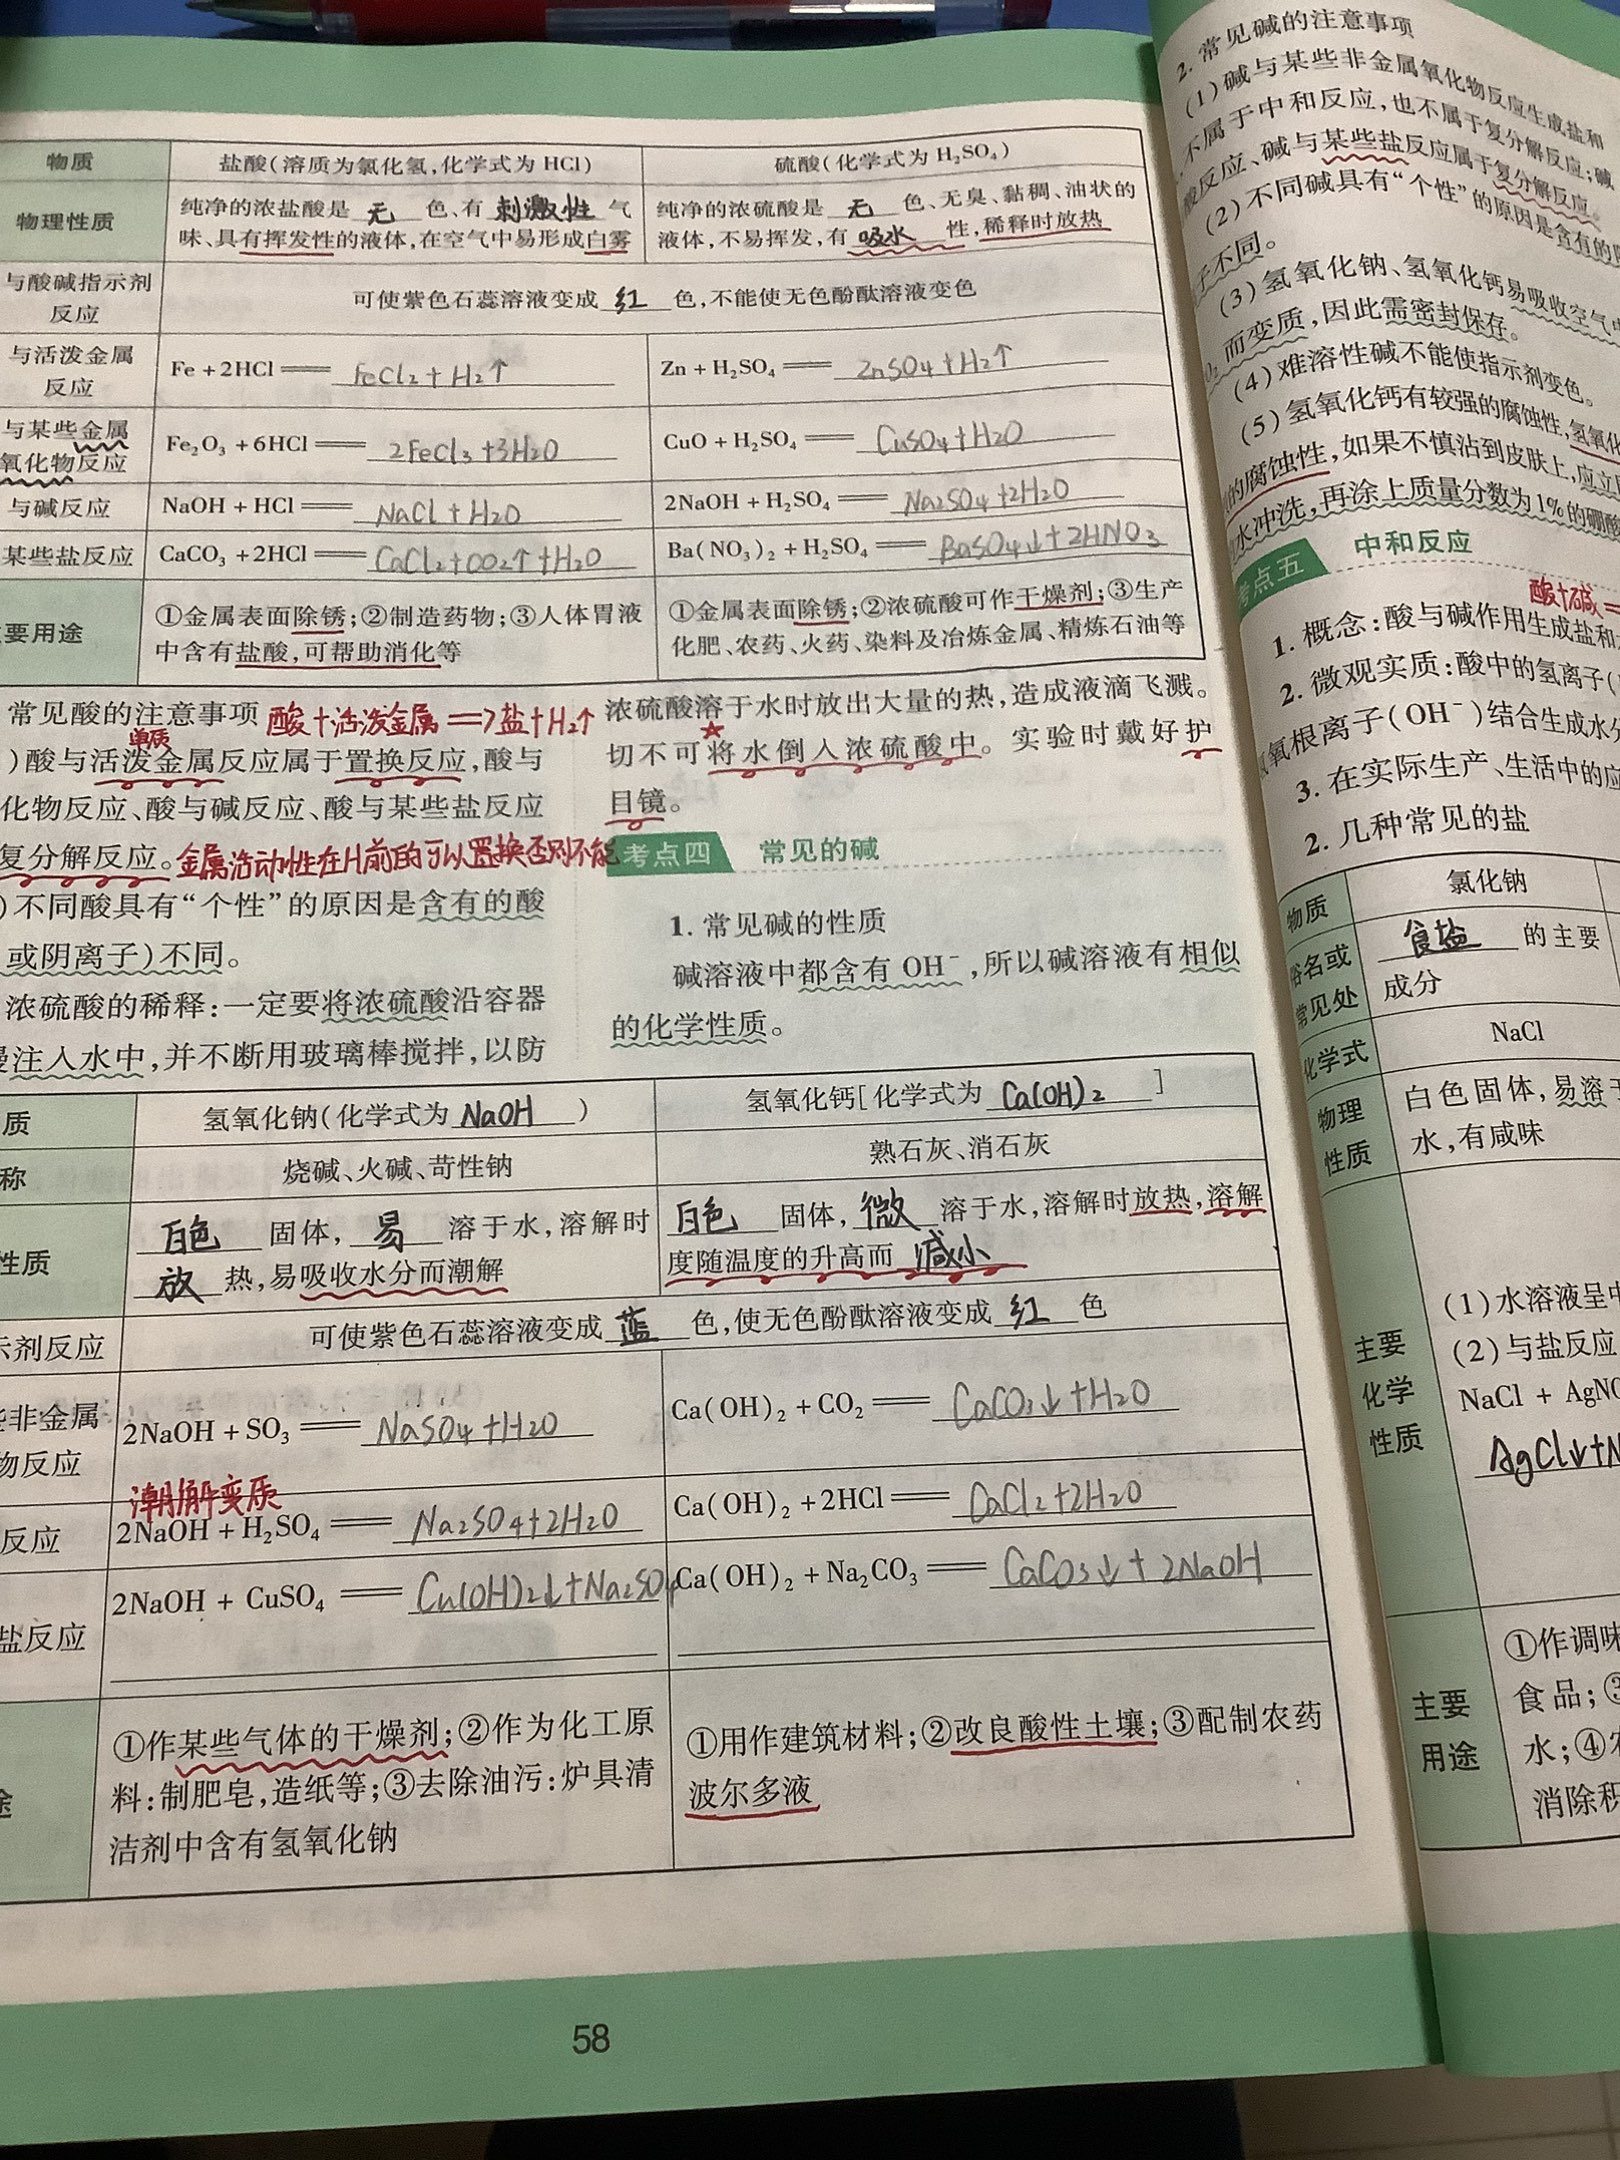 物质 盐酸(溶质为氯化氢,化学式为 HCl) 硫酸(化学式为 H₂SO₄)
物理性质
纯净的浓盐酸是 无 色、有 刺激性 气
味、具有挥发性的液体,在空气中易形成白雾
纯净的浓硫酸是 无 色、无臭、黏稠、油状的
液体,不易挥发,有 吸水 性,稀释时放热
与酸碱指示剂
反应
可使紫色石蕊溶液变成 红 色,不能使无色酚酞溶液变色
与活泼金属
反应
Fe + 2HCl == FeCl₂ + H₂↑
Zn + H₂SO₄ == ZnSO₄ + H₂↑
与某些金属
氧化物反应
Fe₂O₃ + 6HCl == 2FeCl₃ + 3H₂O
CuO + H₂SO₄ == CuSO₄ + H₂O
与碱反应
NaOH + HCl == NaCl + H₂O
2NaOH + H₂SO₄ == Na₂SO₄ + 2H₂O
某些盐反应
CaCO₃ + 2HCl == CaCl₂ + CO₂↑ + H₂O
Ba(NO₃)₂ + H₂SO₄ == BaSO₄↓ + 2HNO₃
要用途
①金属表面除锈;②制造药物;③人体胃液
中含有盐酸,可帮助消化等
①金属表面除锈;②浓硫酸可作干燥剂;③生产
化肥、农药、火药、染料及冶炼金属、精炼石油等
常见酸的注意事项 酸+活泼金属=>盐+H₂↑
单质
)酸与活泼金属反应属于置换反应,酸与
化物反应、酸与碱反应、酸与某些盐反应
复分解反应。金属活动性在H前的可以置换否则不能
)不同酸具有“个性”的原因是含有的酸
或阴离子)不同。
浓硫酸的稀释:一定要将浓硫酸沿容器
注入水中,并不断用玻璃棒搅拌,以防
浓硫酸溶于水时放出大量的热,造成液滴飞溅。
切不可将水倒入浓硫酸中。实验时戴好护
目镜。
考点四 常见的碱
1. 常见碱的性质
碱溶液中都含有 OH⁻,所以碱溶液有相似
的化学性质。
质 氢氧化钠(化学式为 NaOH ) 氢氧化钙[化学式为 Ca(OH)₂ ]
称 烧碱、火碱、苛性钠 熟石灰、消石灰
性质
白色 固体, 易 溶于水,溶解时
放 热,易吸收水分而潮解
白色 固体, 微 溶于水,溶解时放热,溶解
度随温度的升高而 减小
示剂反应 可使紫色石蕊溶液变成 蓝 色,使无色酚酞溶液变成 红 色
些非金属
物反应
2NaOH + SO₃ == NaSO₄ + H₂O
Ca(OH)₂ + CO₂ == CaCO₃↓ + H₂O
潮解变质
反应
2NaOH + H₂SO₄ == Na₂SO₄ + 2H₂O
Ca(OH)₂ + 2HCl == CaCl₂ + 2H₂O
盐反应
2NaOH + CuSO₄ == Cu(OH)₂↓ + Na₂SO₄
Ca(OH)₂ + Na₂CO₃ == CaCO₃↓ + 2NaOH
途
①作某些气体的干燥剂;②作为化工原
料:制肥皂,造纸等;③去除油污:炉具清
洁剂中含有氢氧化钠
①用作建筑材料;②改良酸性土壤;③配制农药
波尔多液
58
2. 常见碱的注意事项
(1)碱与某些非金属氧化物反应生成盐和
不属于中和反应,也不属于复分解反应;碱
酸反应、碱与某些盐反应属于复分解反应。
(2)不同碱具有“个性”的原因是含有的
子不同。
(3)氢氧化钠、氢氧化钙易吸收空气中
而变质,因此需密封保存。
(4)难溶性碱不能使指示剂变色。
(5)氢氧化钙有较强的腐蚀性,氢氧化
的腐蚀性,如果不慎沾到皮肤上,应立
水冲洗,再涂上质量分数为1%的硼酸
考点五 中和反应
酸+碱=
1. 概念:酸与碱作用生成盐和
2. 微观实质:酸中的氢离子(
氢氧根离子(OH⁻)结合生成水分
3. 在实际生产、生活中的应
2. 几种常见的盐
物质 氯化钠
俗名或
常见处
食盐 的主要
成分
化学式 NaCl
物理
性质
白色固体,易溶于
水,有咸味
主要
化学
性质
(1)水溶液呈中
(2)与盐反应
NaCl + AgNO
AgCl↓+N
主要
用途
①作调味
食品;③
水;④农
消除积